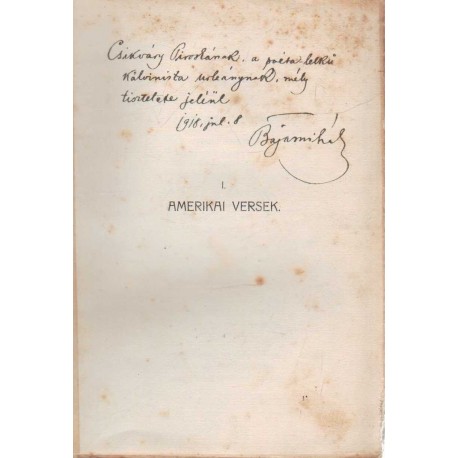 Csikváry Piroskának, a poéta lelkü
kálvinista urleánynak, mély
tisztelete jeléül
1918. jul. 8
Baja Mihály
I.
AMERIKAI VERSEK.